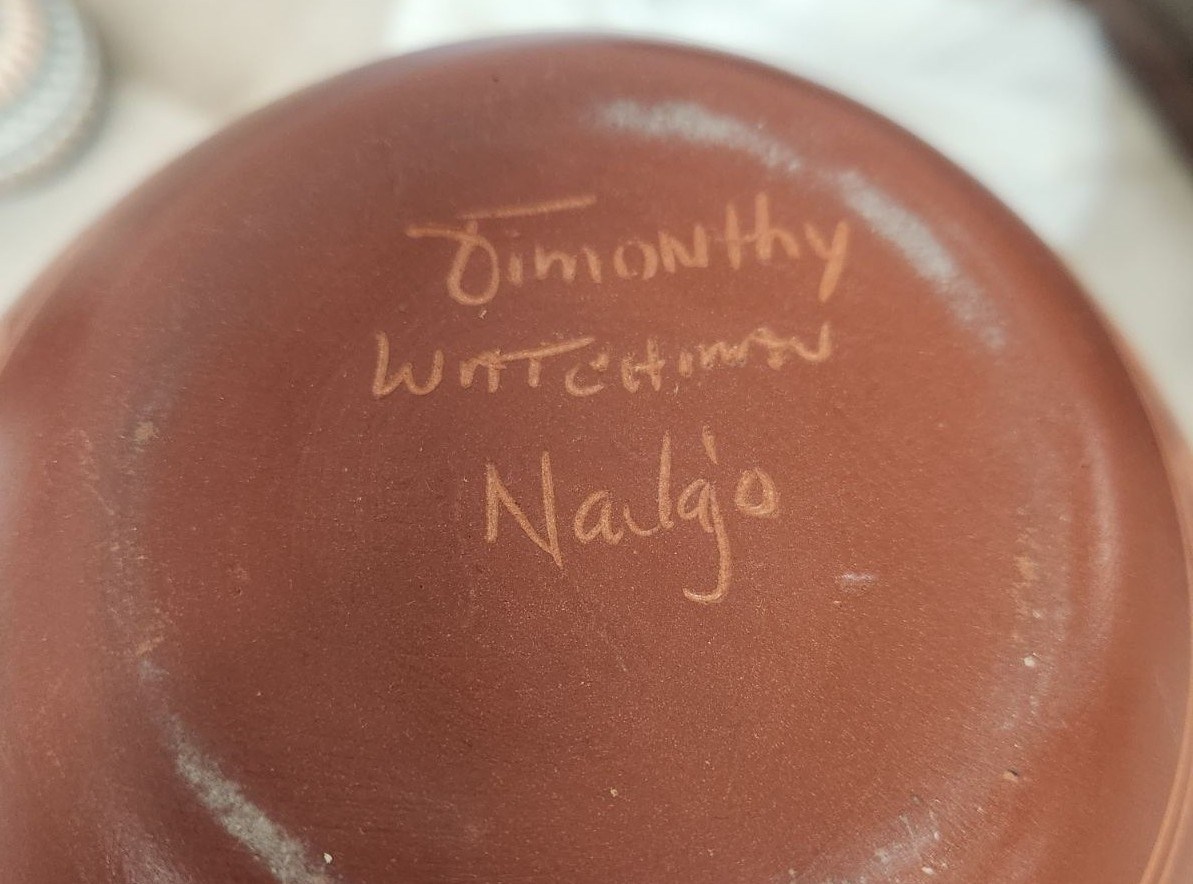 Timonthy
WATCHMAN
Navajo